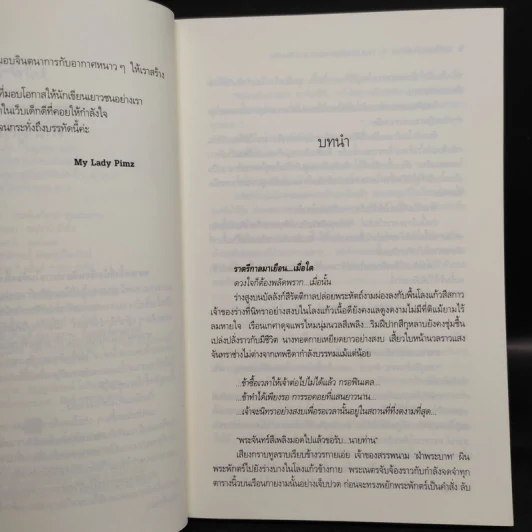 มอบจินตนาการกับอากาศหนาว ๆ ให้เราสร้าง
ที่มอบโอกาสให้นักเขียนเยาวชนอย่างเรา
ในเว็บเด็กดีที่คอยให้กำลังใจ
จนกระทั่งถึงบรรทัดนี้ค่ะ
My Lady Pimz
บทนำ
ราตรีกาลมาเยือน...เมื่อใด
ดวงใจก็ต้องพลัดพราก...เมื่อนั้น
ร่างสูงบนบัลลังก์สีรัตติกาลปล่อยพระหัตถ์งามผ่องลงกับพื้นโลงแก้วสีสกาว
เจ้าของร่างที่นิทราอย่างสงบในโลงแก้วเนื้อดียังคงแลดูงดงามไม่มีที่ติแม้ยามไร้
ลมหายใจ เรือนเกศาดุจแพรไหมนุ่มนวลสีเพลิง...ริมฝีปากสีกุหลาบยังคงชุ่มชื้น
เปล่งปลั่งราวกับมีชีวิต นางทอดกายเหยียดยาวอย่างสงบ เสี้ยวใบหน้านวลราวแสง
จันทราช่างไม่ต่างจากเทพธิดากำลังบรรทมแม้แต่น้อย
...ข้าซื้อเวลาให้เจ้าต่อไปไม่ได้แล้ว กรอฟินเดล...
...ข้าทำได้เพียงรอ การรอคอยที่แสนยาวนาน...
...เจ้าจะนิทราอย่างสงบเพื่อรอเวลานั้นอยู่ในสถานที่ที่งดงามที่สุด...
"พระจันทร์สีเพลิงมอดไปแล้วขอรับ...นายท่าน"
เสียงกราบทูลราบเรียบข้างวรกายเอ่ย เจ้าของสรรพนาม 'ฝ่าพระบาท' ผิน
พระพักตร์ไปยังร่างบางในโลงแก้วข้างกาย พระเนตรจับจ้องราวกับกำลังจดจำทุก
ตารางนิ้วบนเรือนกายงามนั้นอย่างเจ็บปวด ก่อนจะทรงพยักพระพักตร์เป็นคำสั่ง ลับ